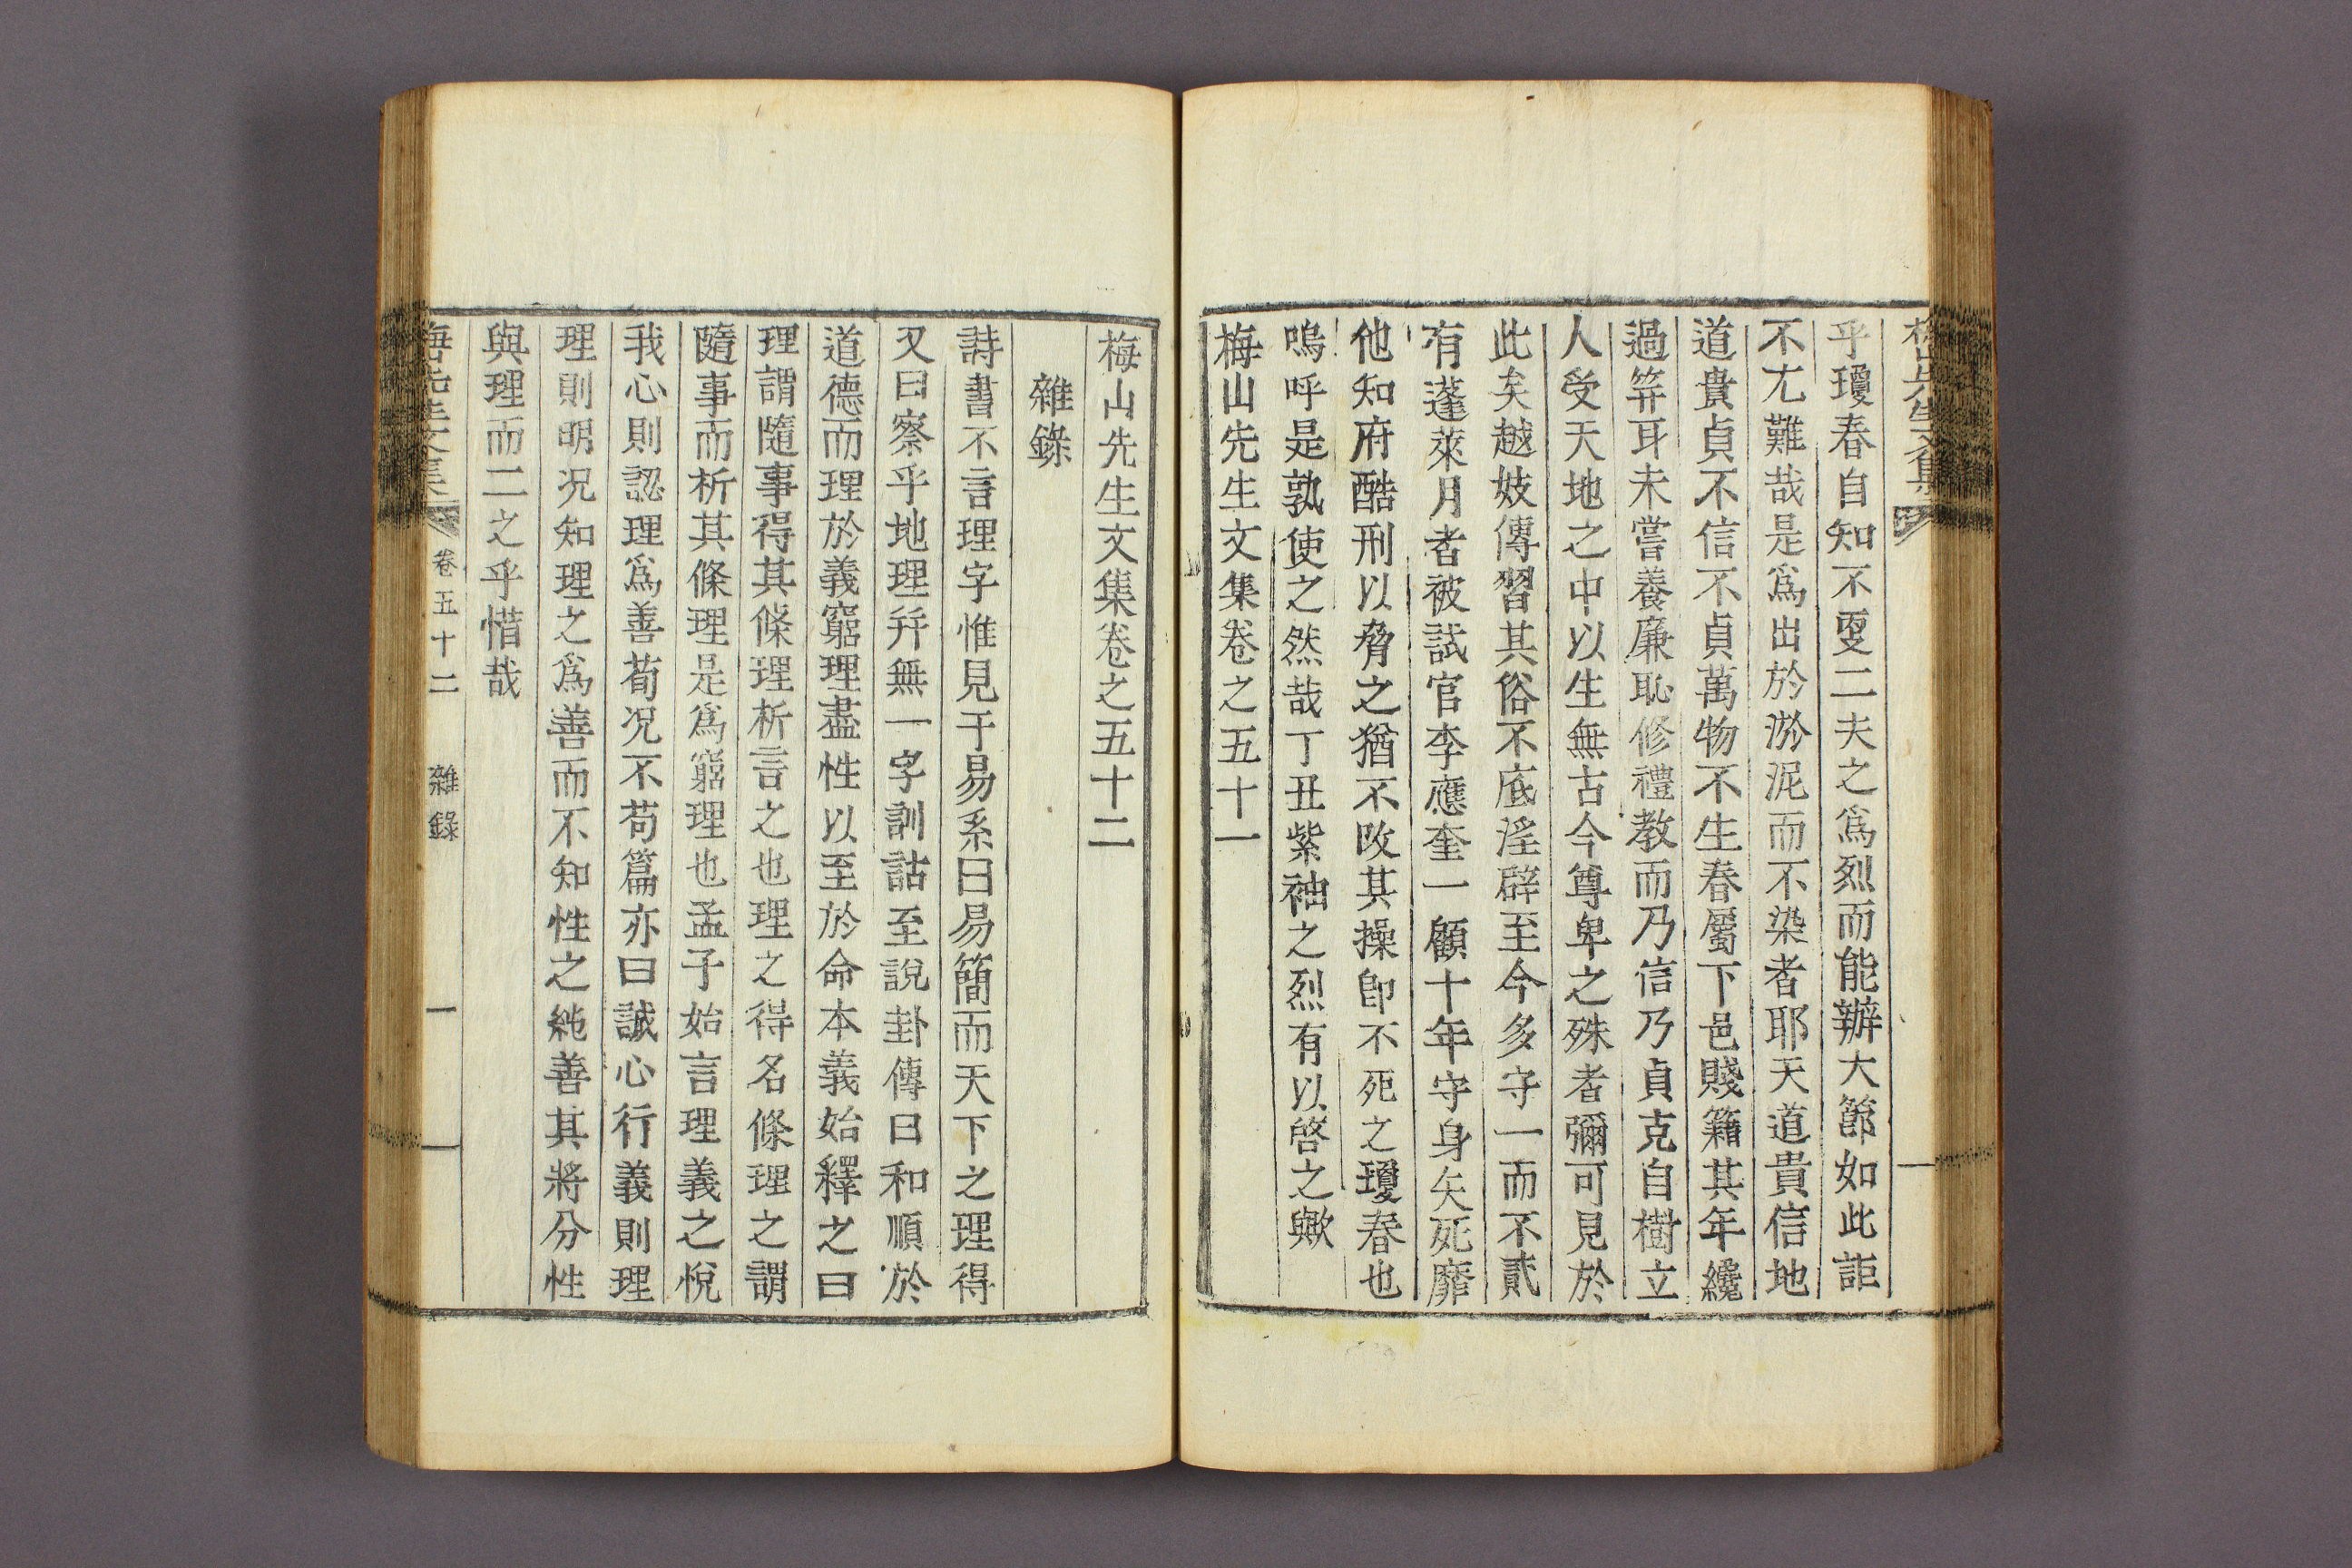 梅山先生文集
乎瓊春自知不更二夫之爲烈而能辦大節如此詎
不尤難哉是爲出於淤泥而不染者耶天道貴信地
道貴貞不信不貞萬物不生春屬下邑賤籍其年纔
過笄耳未嘗養廉恥修禮教而乃信乃貞克自樹立
人受天地之中以生無古今尊卑之殊者彌可見於
此矣越妓傳習其俗不底淫辟至今多守一而不貳
有蓬萊月者被試官李應奎一顧十年守身矢死靡
他知府酷刑以脅之猶不改其操卽不死之瓊春也
嗚呼是孰使之然哉丁丑紫袖之烈有以啓之歟
梅山先生文集卷之五十一
梅山先生文集卷之五十二
雜錄
詩書不言理字惟見于易系曰易簡而天下之理得
又曰察乎地理幷無一字訓詁至說卦傳曰和順於
道德而理於義窮理盡性以至於命本義始釋之曰
理謂隨事得其條理析言之也理之得名條理之謂
隨事而析其條理是爲窮理也孟子始言理義之悅
我心則認理爲善荀况不苟篇亦曰誠心行義則理
理則明况知理之爲善而不知性之純善其將分性
與理而二之乎惜哉
梅山先生文集 卷五十二 雜錄 一